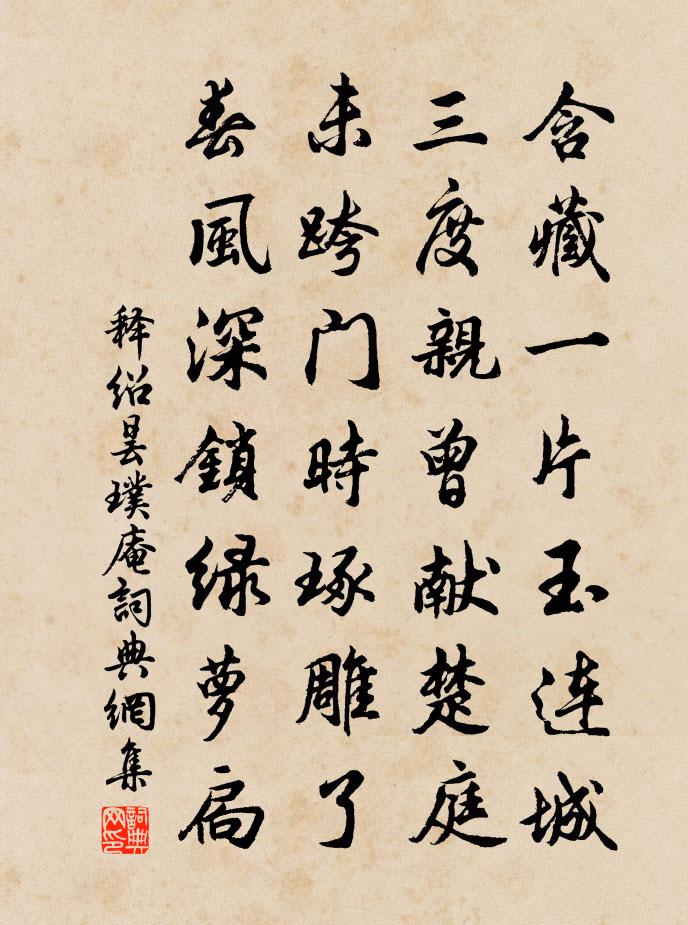 含藏一片玉連城
三度親曾献楚庭
未跨門時琢雕了
春風深鎖緑萝扃
释绍昙璞庵詞典網集
詞典网印